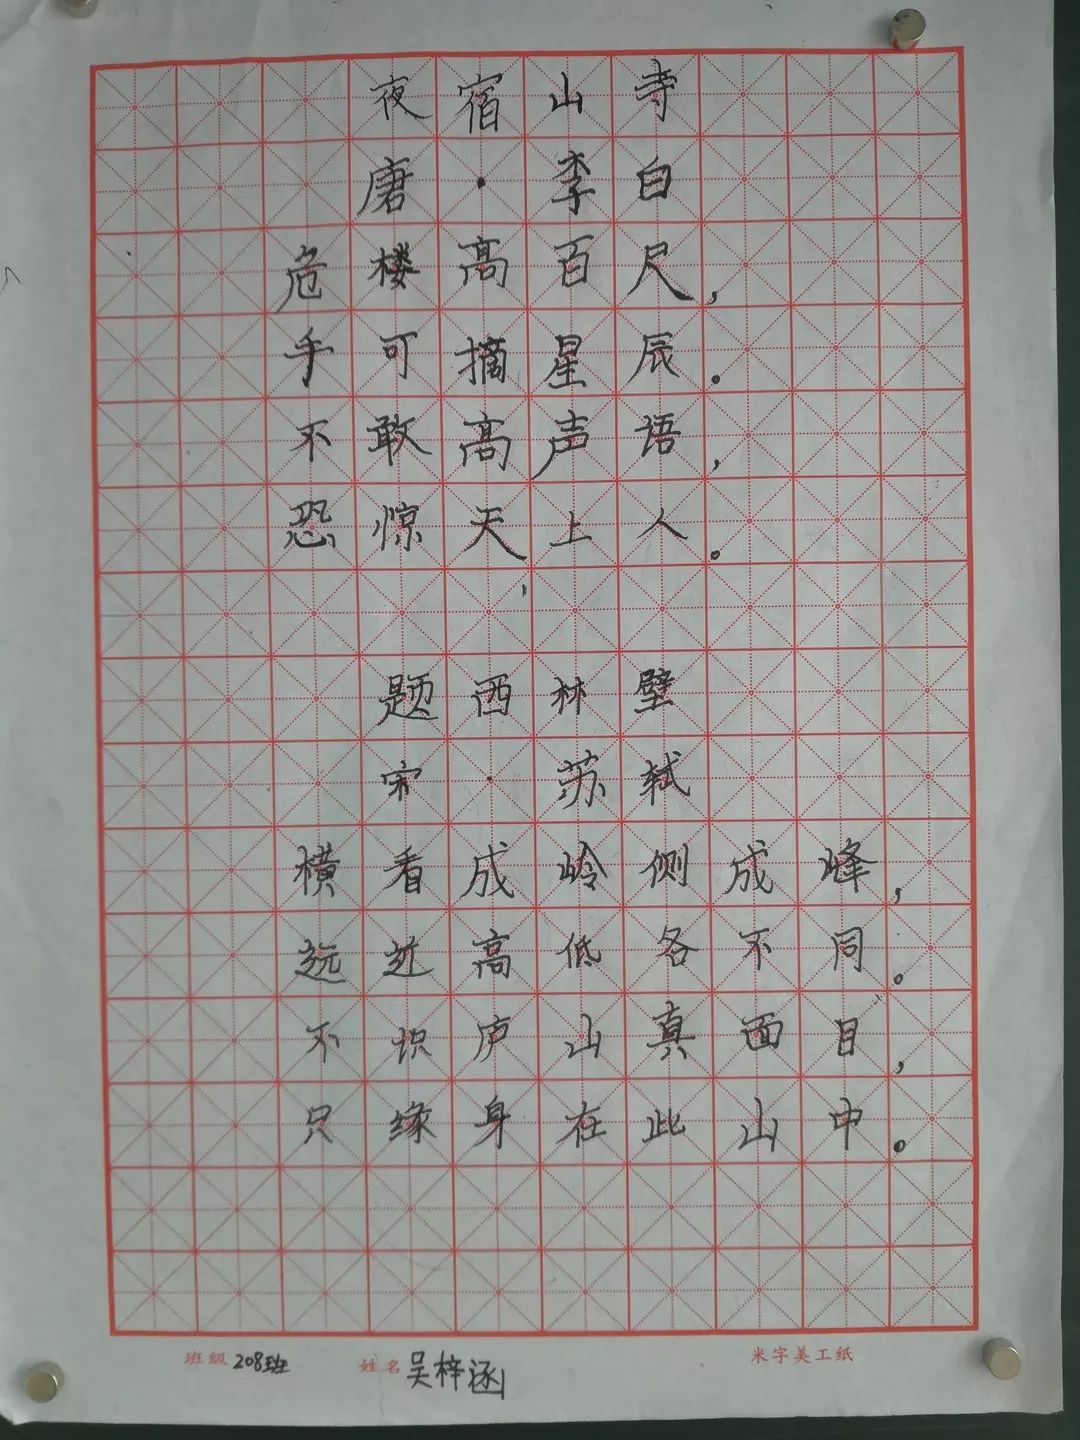 夜宿山寺
唐·李白
危楼高百尺，
手可摘星辰。
不敢高声语，
恐惊天上人。
题西林壁
宋·苏轼
横看成岭侧成峰，
远近高低各不同。
不识庐山真面目，
只缘身在此山中。
班级 208班 姓名 吴梓涵 米字美工纸